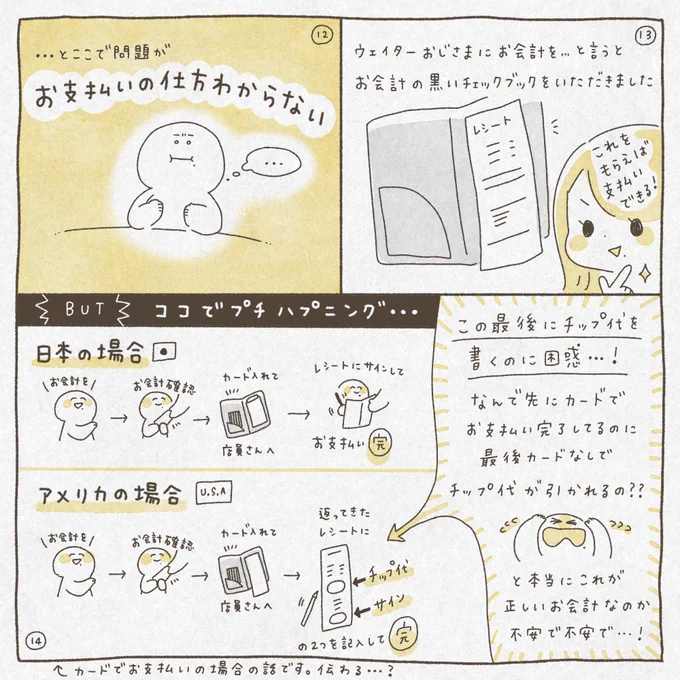 12
...とここで問題が
お支払いの仕方わからない
...
13
ウェイターおじさまにお会計を...と言うと
お会計の黒いチェックブックをいただきました
レシート
これを
もらえば
支払い
できる!
BUT ココでプチハプニング...
日本の場合
お会計を
お会計確認
カード入れて
店員さんへ
レシートにサインして
お支払い完
アメリカの場合 U.S.A
お会計を
お会計確認
カード入れて
店員さんへ
返ってきた
レシートに
チップ代
サイン
の2つを記入して完
この最後にチップ代を
書くのに困惑...!
なんで先にカードで
お支払い完了してるのに
最後カードなしで
チップ代が引かれるの??
と本当にこれが
正しいお会計なのか
不安で不安で...!
14
カードでお支払いの場合の話です。伝わる...?